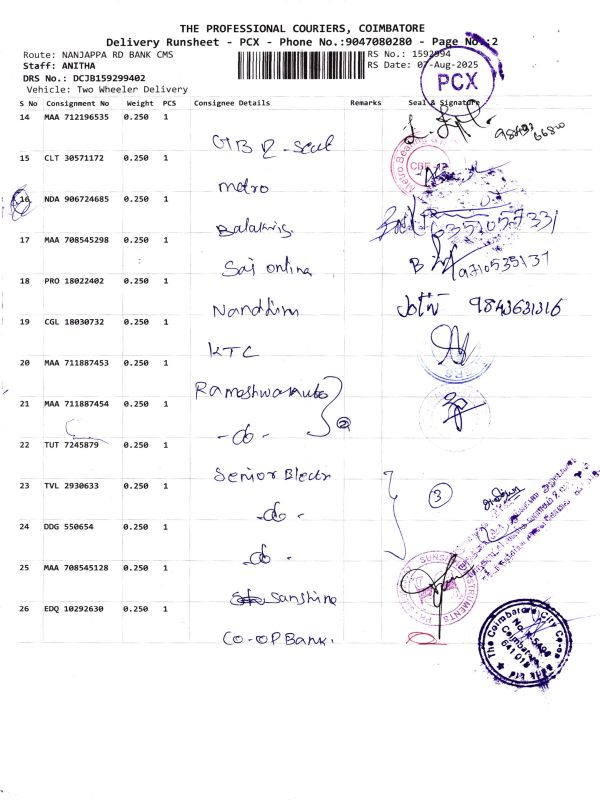 THE PROFESSIONAL COURIERS, COIMBATORE
Delivery Runsheet - PCX - Phone No.:9047080280 - Page No.:2
Route: NANJAPPA RD BANK CMS
RS No.: 1592994
Staff: ANITHA
RS Date: 07-Aug-2025
DRS No.: DCJB159299402
Vehicle: Two Wheeler Delivery
PCX
S No Consignment No Weight PCS Consignee Details Remarks Seal & Signature
14 MAA 712196535 0.250 1
98423 66800
15 CLT 30571172 0.250 1
metro
Metro
CBE
16 NDA 906724685 0.250 1
Balakris
6351057331
17 MAA 708545298 0.250 1
Sai online
9710535137
18 PRO 18022402 0.250 1
Nanddini
Jothi 9843631316
19 CGL 18030732 0.250 1
KTC
20 MAA 711887453 0.250 1
Rameshwarauto
21 MAA 711887454 0.250 1
-do- 2
22 TUT 7245879 0.250 1
Senior Electr
23 TVL 2930633 0.250 1
-do- 3
24 DDG 550654 0.250 1
-do-
25 MAA 708545128 0.250 1
Sanshine
SUNSHINE INSTRUMENTS
26 EDQ 10292630 0.250 1
CO-OP Bank.
The Coimbatore City Co-op Bank Ltd
Coimbatore
641 018